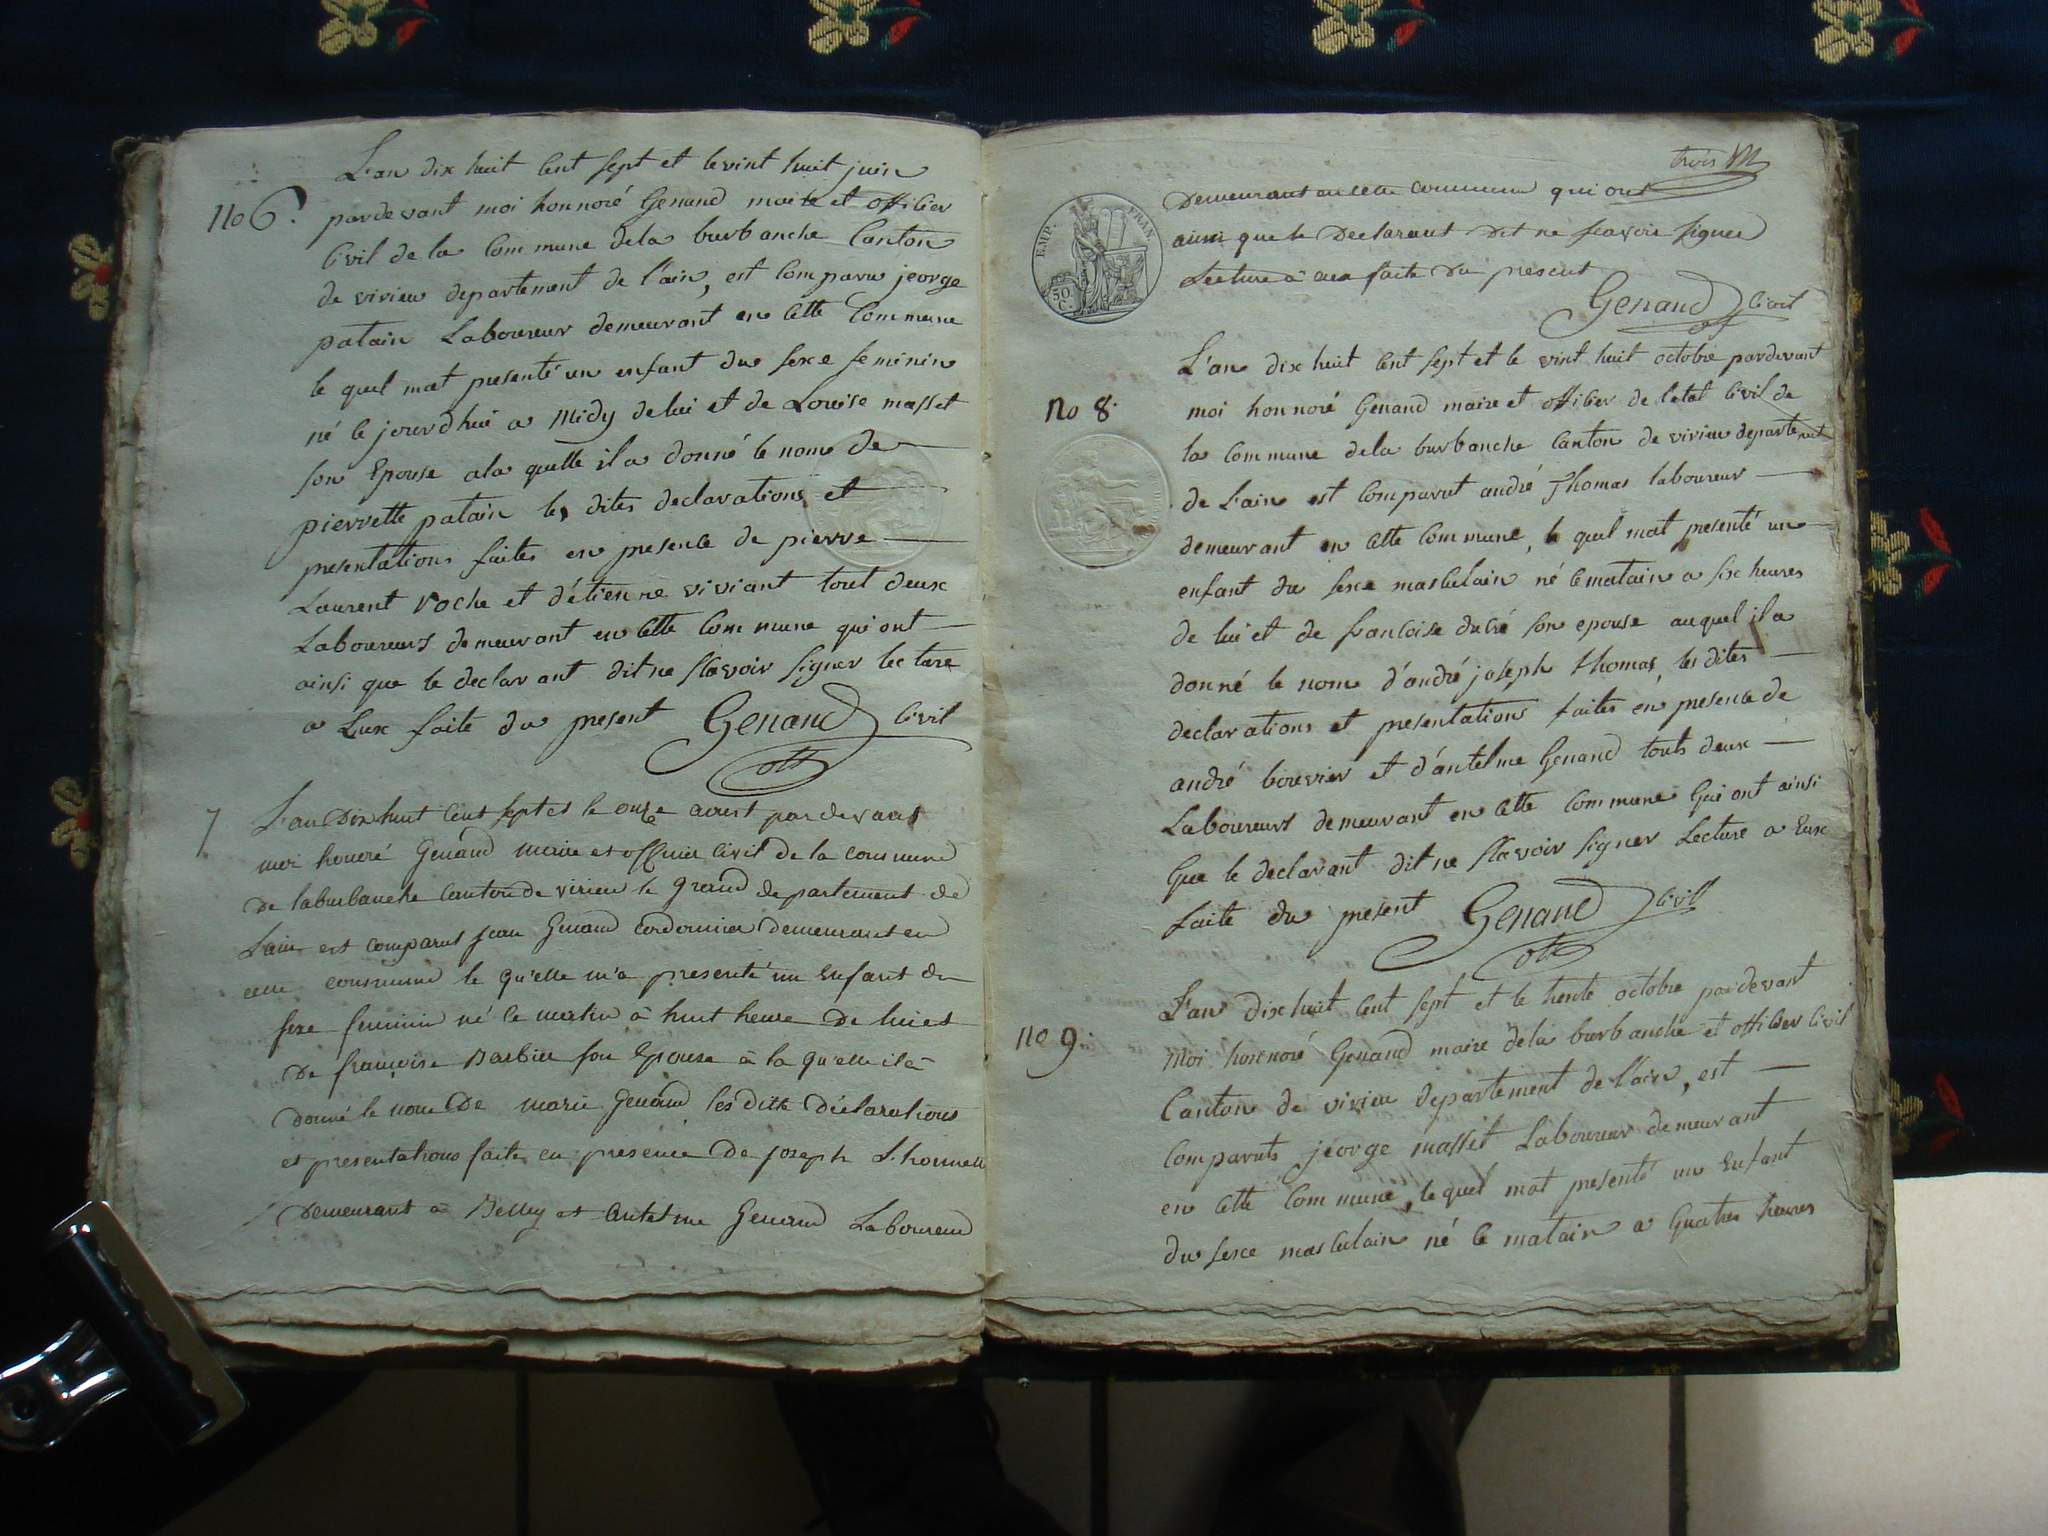 L'an dix huit cent sept et le vint huit juin
No 6.
pardevant moi honnoré Genand maire et officier
civil de la commune dela burbanche canton
de virieu departement de l'ain, est comparu jeorge
patain Laboureur demeurant en cette commune
le quel mat presenté un enfant du sexe feminin
né le jourdhui a midy delui et de Louise masset
son Epouse ala quelle il a donné le nom de
pierrette patain les dites declarations et
presentations faites en presence de pierre
Laurent roche et d'étienne viviant tout deux
Laboureurs demeurant en cette commune qui ont
ainsi que le declarant dit ne scavoir signer lecture
a Eux faite du present Genand off civil
7
L'an Dix huit cent sept et le onze aoust par devant
moi honoré Genand maire et officier civil de la commune
de laburbanche canton de virieu le grand departement de
Lain est comparus jean Genand cordonnier demeurant en
cette commune le qu'elle m'a presenté un Enfant du
sexe feminin né ce matin à huit heure de lui et
de françoise Barbier son Epouse à la qu'elle il à
donné le nom de marie Genand les ditte déclarations
et presentations faite en présence de joseph
demeurant à Belley et Antelme Genand Laboureur
trois
EMP. FRAN.
50 C.
demeurant en cette commune qui ont
ainsi que le declarant dit ne scavoir signer
Lecture à eux faite du present
Genand off civil
L'an dix huit cent sept et le vint huit octobre pardevant
No 8.
moi honnoré Genand maire et officier de l'etat civil de
la commune dela burbanche canton de virieu departement
de L'ain est comparut andré Thomas laboureur
demeurant en cette commune, le quel mat presenté un
enfant du sexe masculain né le matain a six heures
de lui et de francoise ducré son epouse auquel il a
donné le nom d'andré joseph thomas, les dites
declarations et presentations faites en presence de
andré bouvier et d'antelme Genand touts deux
Laboureurs demeurant en cette commune qui ont ainsi
que le declarant dit ne scavoir signer Lecture a Eux
faite du present Genand off civil
L'an dix huit cent sept et le trente octobre pardevant
No 9.
Moi honnoré Genand maire dela burbanche et officier civil
Canton de virieu departement de l'ain, est
comparuts jeorge masset Laboureur demeurant
en cette commune, lequel mat presenté un Enfant
du sexe masculain né le matain a quatres heures